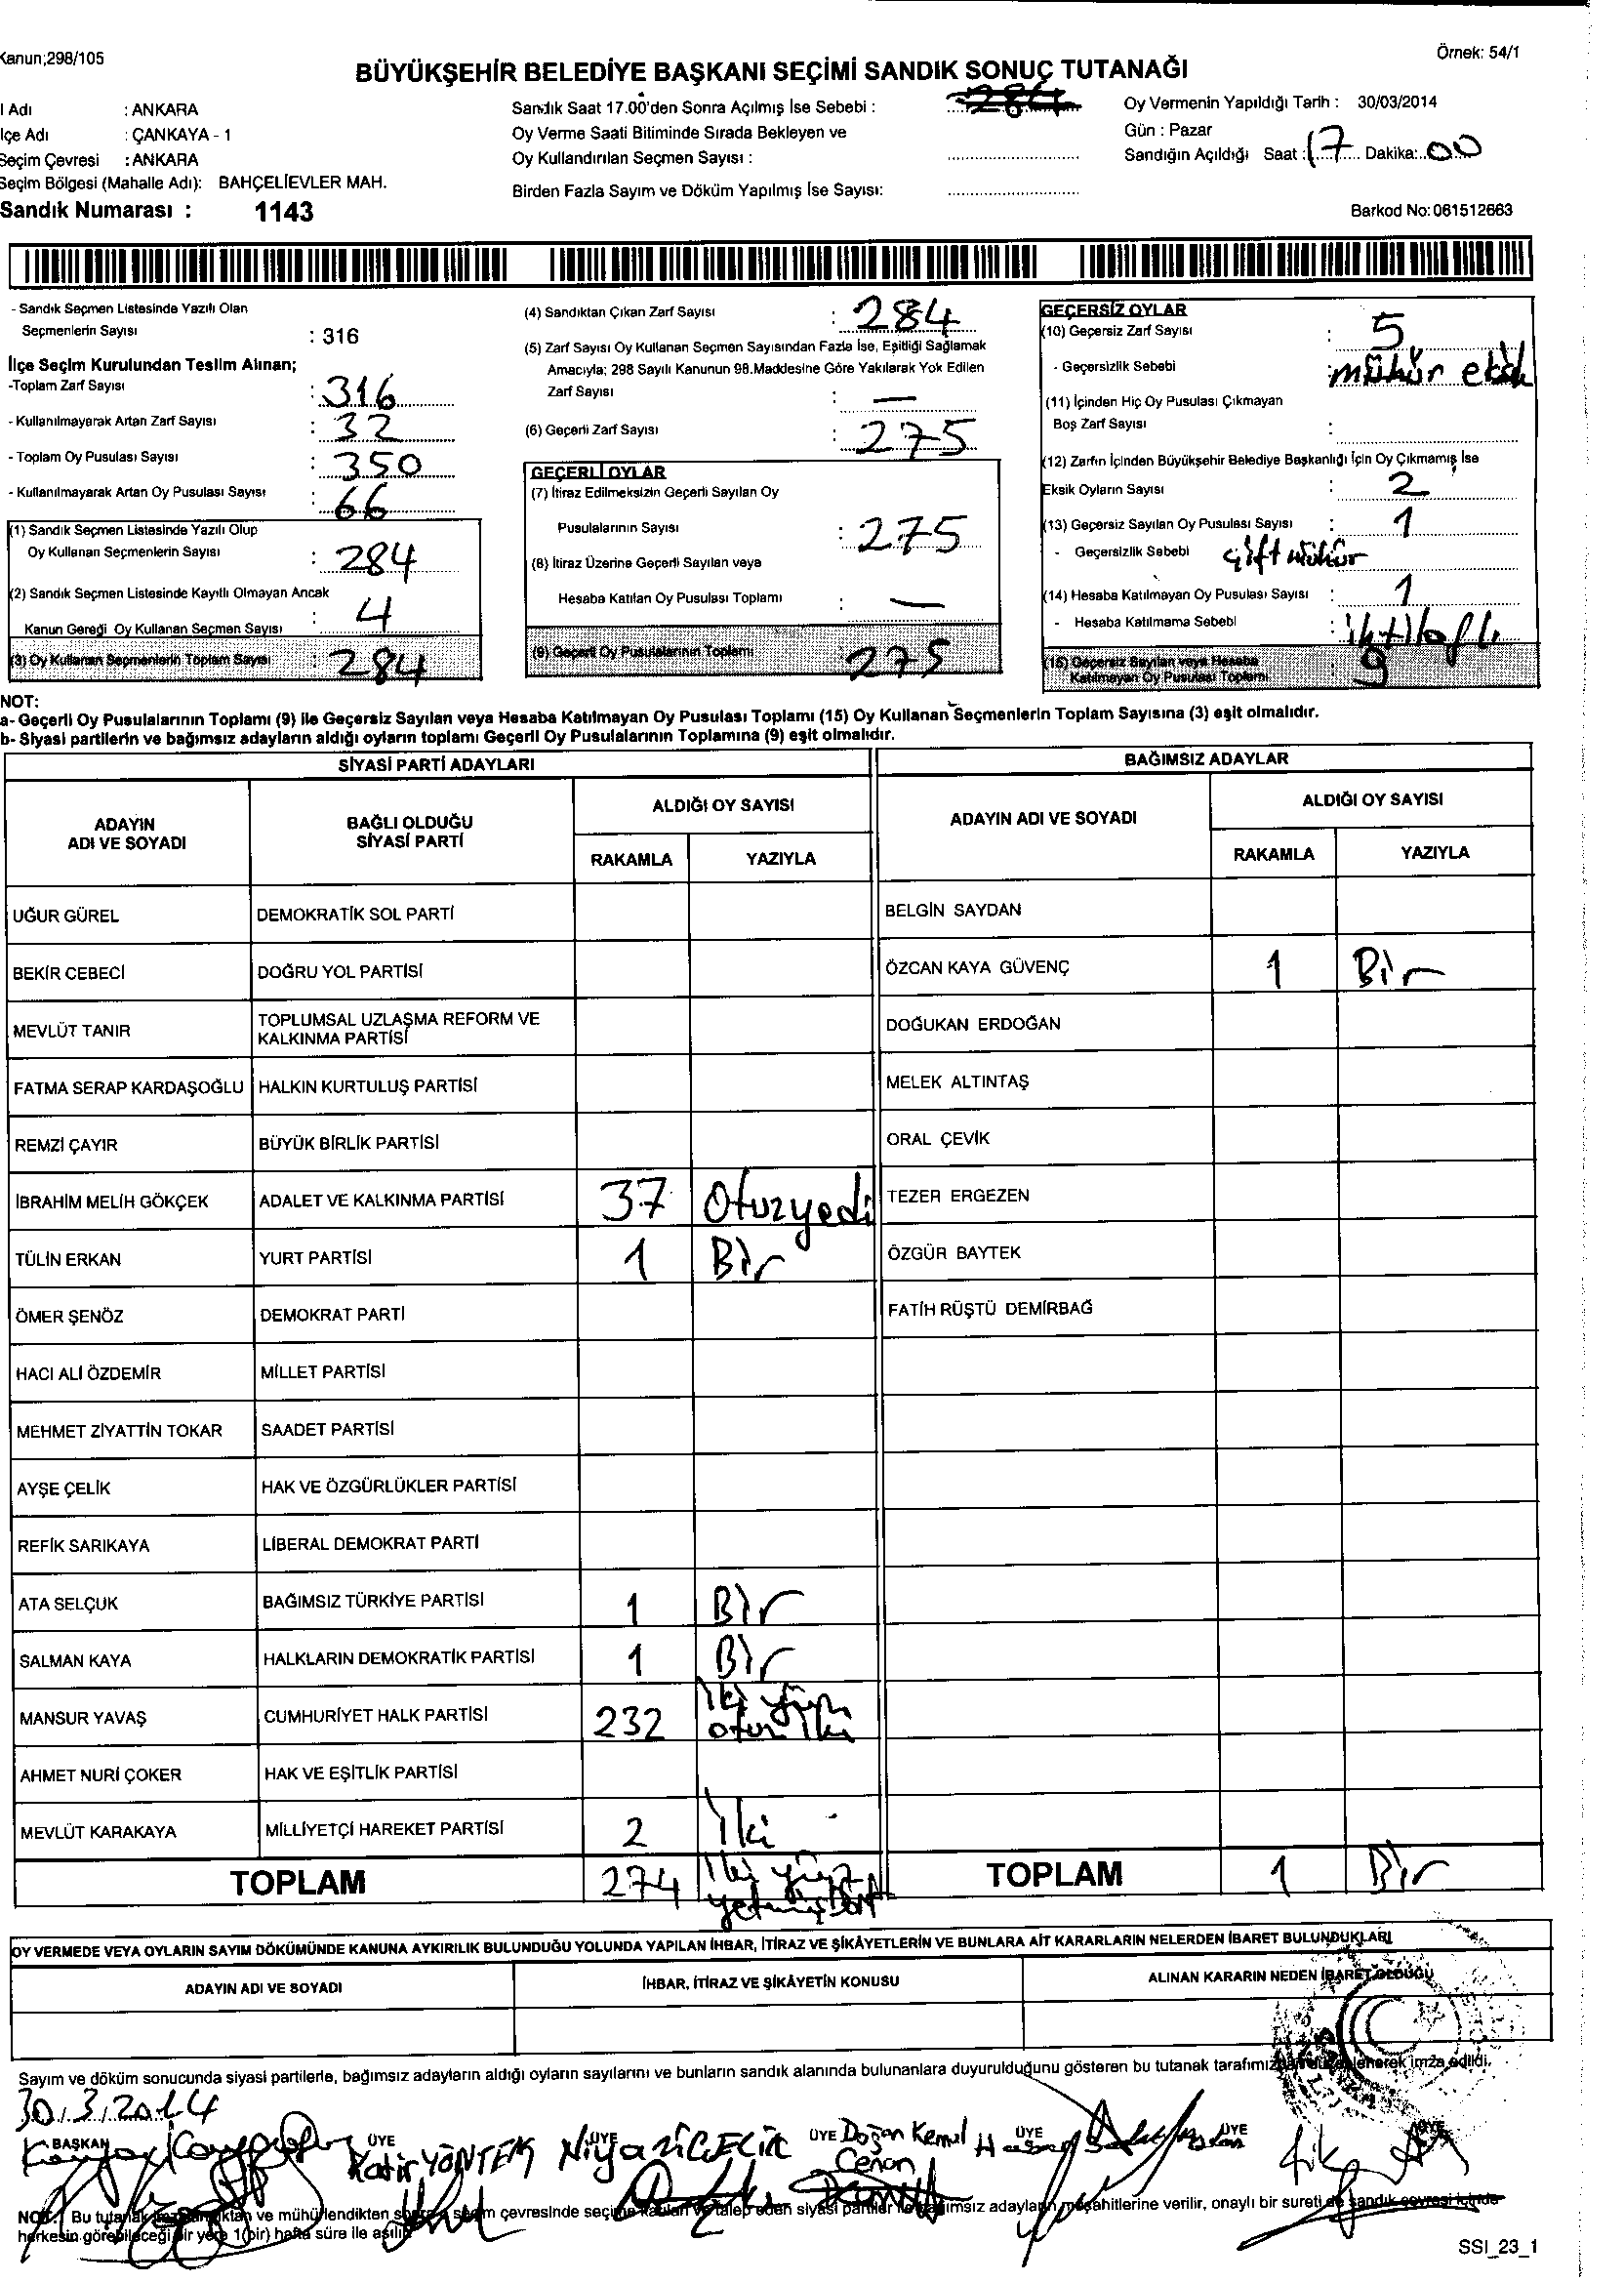 Kanun;298/105
Örnek: 54/1
BÜYÜKŞEHİR BELEDİYE BAŞKANI SEÇİMİ SANDIK SONUÇ TUTANAĞI
İl Adı : ANKARA
İlçe Adı : ÇANKAYA - 1
Seçim Çevresi : ANKARA
Seçim Bölgesi (Mahalle Adı): BAHÇELİEVLER MAH.
Sandık Numarası : 1143
Sandık Saat 17.00'den Sonra Açılmış İse Sebebi : 284
Oy Verme Saati Bitiminde Sırada Bekleyen ve
Oy Kullandırılan Seçmen Sayısı :
Birden Fazla Sayım ve Döküm Yapılmış İse Sayısı:
Oy Vermenin Yapıldığı Tarih : 30/03/2014
Gün : Pazar
Sandığın Açıldığı Saat : 17 Dakika: 00
Barkod No: 061512663
- Sandık Seçmen Listesinde Yazılı Olan
Seçmenlerin Sayısı : 316
İlçe Seçim Kurulundan Teslim Alınan;
-Toplam Zarf Sayısı : 316
- Kullanılmayarak Artan Zarf Sayısı : 32
- Toplam Oy Pusulası Sayısı : 350
- Kullanılmayarak Artan Oy Pusulası Sayısı : 66
(1) Sandık Seçmen Listesinde Yazılı Olup
Oy Kullanan Seçmenlerin Sayısı : 284
(2) Sandık Seçmen Listesinde Kayıtlı Olmayan Ancak
Kanun Gereği Oy Kullanan Seçmen Sayısı : 4
(3) Oy Kullanan Seçmenlerin Toplam Sayısı : 284
(4) Sandıktan Çıkan Zarf Sayısı : 284
(5) Zarf Sayısı Oy Kullanan Seçmen Sayısından Fazla İse, Eşitliği Sağlamak
Amacıyla; 298 Sayılı Kanunun 98.Maddesine Göre Yakılarak Yok Edilen
Zarf Sayısı : —
(6) Geçerli Zarf Sayısı : 275
GEÇERLİ OYLAR
(7) İtiraz Edilmeksizin Geçerli Sayılan Oy
Pusulalarının Sayısı : 275
(8) İtiraz Üzerine Geçerli Sayılan veya
Hesaba Katılan Oy Pusulası Toplamı : —
(9) Geçerli Oy Pusulalarının Toplamı 275
GEÇERSİZ OYLAR
(10) Geçersiz Zarf Sayısı : 5
- Geçersizlik Sebebi : mühür eksik
(11) İçinden Hiç Oy Pusulası Çıkmayan
Boş Zarf Sayısı :
(12) Zarfın İçinden Büyükşehir Belediye Başkanlığı İçin Oy Çıkmamış İse
Eksik Oyların Sayısı : 2
(13) Geçersiz Sayılan Oy Pusulası Sayısı : 1
- Geçersizlik Sebebi çift mühür
(14) Hesaba Katılmayan Oy Pusulası Sayısı : 1
- Hesaba Katılmama Sebebi :
(15) Geçersiz Sayılan veya Hesaba
Katılmayan Oy Pusulası Toplamı : 9
NOT:
a- Geçerli Oy Pusulalarının Toplamı (9) ile Geçersiz Sayılan veya Hesaba Katılmayan Oy Pusulası Toplamı (15) Oy Kullanan Seçmenlerin Toplam Sayısına (3) eşit olmalıdır.
b- Siyasi partilerin ve bağımsız adayların aldığı oyların toplamı Geçerli Oy Pusulalarının Toplamına (9) eşit olmalıdır.
SİYASİ PARTİ ADAYLARI
ADAYIN ADI VE SOYADI
BAĞLI OLDUĞU SİYASİ PARTİ
ALDIĞI OY SAYISI
RAKAMLA YAZIYLA
UĞUR GÜREL DEMOKRATİK SOL PARTİ
BEKİR CEBECİ DOĞRU YOL PARTİSİ
MEVLÜT TANIR TOPLUMSAL UZLAŞMA REFORM VE
KALKINMA PARTİSİ
FATMA SERAP KARDAŞOĞLU HALKIN KURTULUŞ PARTİSİ
REMZİ ÇAYIR BÜYÜK BİRLİK PARTİSİ
İBRAHİM MELİH GÖKÇEK ADALET VE KALKINMA PARTİSİ 37 Otuzyedi
TÜLİN ERKAN YURT PARTİSİ 1 Bir
ÖMER ŞENÖZ DEMOKRAT PARTİ
HACI ALİ ÖZDEMİR MİLLET PARTİSİ
MEHMET ZİYATTİN TOKAR SAADET PARTİSİ
AYŞE ÇELİK HAK VE ÖZGÜRLÜKLER PARTİSİ
REFİK SARIKAYA LİBERAL DEMOKRAT PARTİ
ATA SELÇUK BAĞIMSIZ TÜRKİYE PARTİSİ 1 Bir
SALMAN KAYA HALKLARIN DEMOKRATİK PARTİSİ 1 Bir
MANSUR YAVAŞ CUMHURİYET HALK PARTİSİ 232 İki yüz
otuz iki
AHMET NURİ ÇOKER HAK VE EŞİTLİK PARTİSİ
MEVLÜT KARAKAYA MİLLİYETÇİ HAREKET PARTİSİ 2 İki
TOPLAM 274 İki yüz
yetmişdört
BAĞIMSIZ ADAYLAR
ADAYIN ADI VE SOYADI
ALDIĞI OY SAYISI
RAKAMLA YAZIYLA
BELGİN SAYDAN
ÖZCAN KAYA GÜVENÇ 1 Bir
DOĞUKAN ERDOĞAN
MELEK ALTINTAŞ
ORAL ÇEVİK
TEZER ERGEZEN
ÖZGÜR BAYTEK
FATİH RÜŞTÜ DEMİRBAĞ
TOPLAM 1 Bir
OY VERMEDE VEYA OYLARIN SAYIM DÖKÜMÜNDE KANUNA AYKIRILIK BULUNDUĞU YOLUNDA YAPILAN İHBAR, İTİRAZ VE ŞİKÂYETLERİN VE BUNLARA AİT KARARLARIN NELERDEN İBARET BULUNDUKLARI
ADAYIN ADI VE SOYADI
İHBAR, İTİRAZ VE ŞİKÂYETİN KONUSU
ALINAN KARARIN NEDEN İBARET OLDUĞU
Sayım ve döküm sonucunda siyasi partilerle, bağımsız adayların aldığı oyların sayılarını ve bunların sandık alanında bulunanlara duyurulduğunu gösteren bu tutanak tarafımızdan düzenlenerek imza edildi.
30.3.2014
BAŞKAN ÜYE ÜYE ÜYE ÜYE ÜYE
Kadir YÖNTEM
Doğan Kemal
Cenan
NOT: Bu tutanak imzalandıktan ve mühürlendikten sonra seçim çevresinde seçime katılan ve talep eden siyasi partiler ile bağımsız adayların müşahitlerine verilir, onaylı bir sureti de sandık çevresi içinde
herkesin görebileceği bir yere 1(bir) hafta süre ile asılır.
SSI_23_1